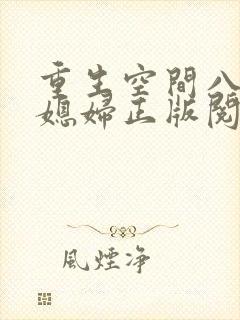 重生空間八
媳婦正版閱
風煙净